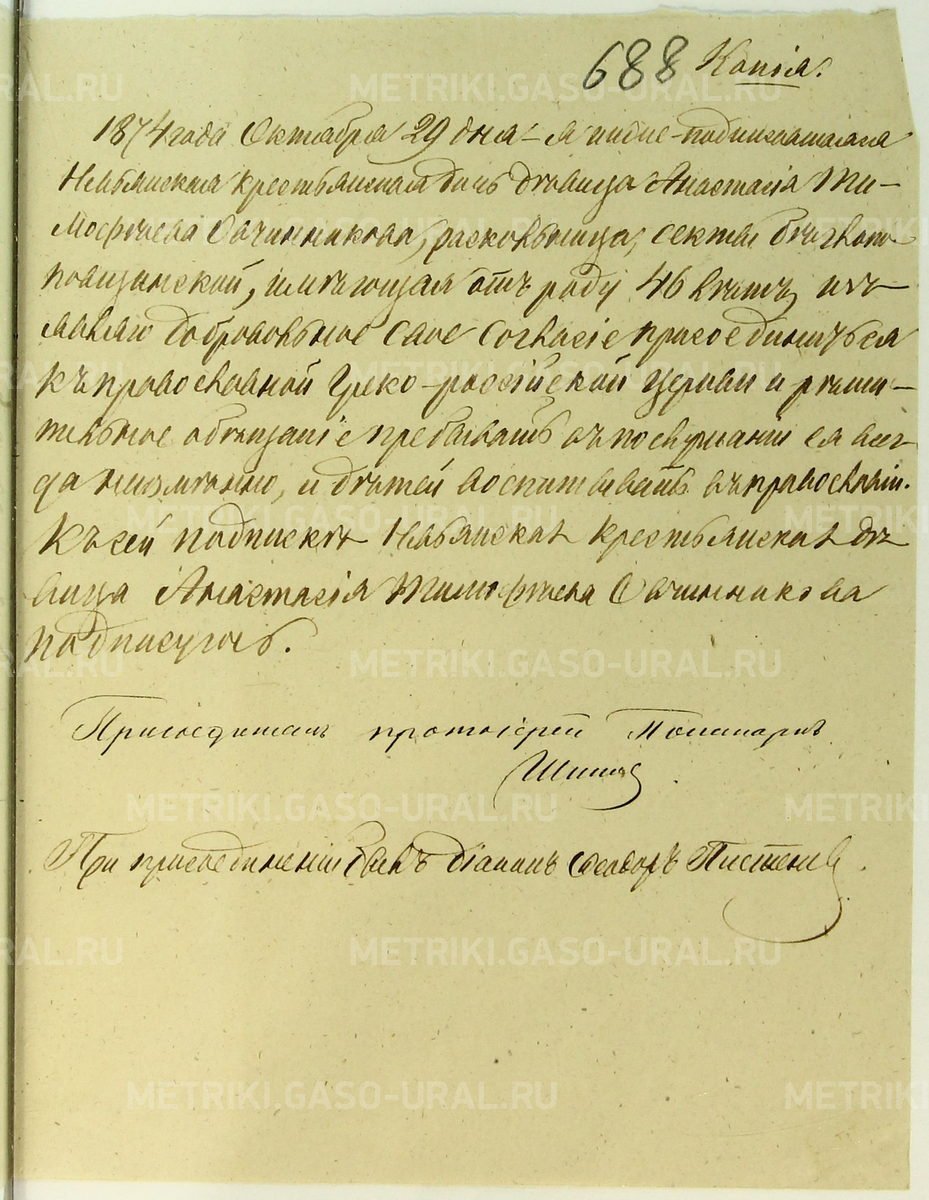 688 Копія.
1874 года Октября 29 дня – я ниже-подписавшаяся
Невьянская крестьянская дочь дѣвица Анастасія Ти-
мофѣева Овчинникова, расковьница, секты бѣгло
поповщинской, имѣющая отъ роду 46 лѣтъ, изъ-
являю добровольное свое согласіе присоединиться
къ православной Греко-россійской церкви и рѣши-
тельное обѣщаніе пребывать въ послушаніи ея всег-
да неизмѣнно, и дѣтей воспитывать въ православіи.
Къ сей подпискѣ Невьянская крестьянская дѣ-
вица Анастасія Тимофѣева Овчинникова
подписуюсь.
Присоединилъ протоіерей
При присоединеніи былъ діаконъ Ѳеодоръ
METRIKI.GASO-URAL.RU